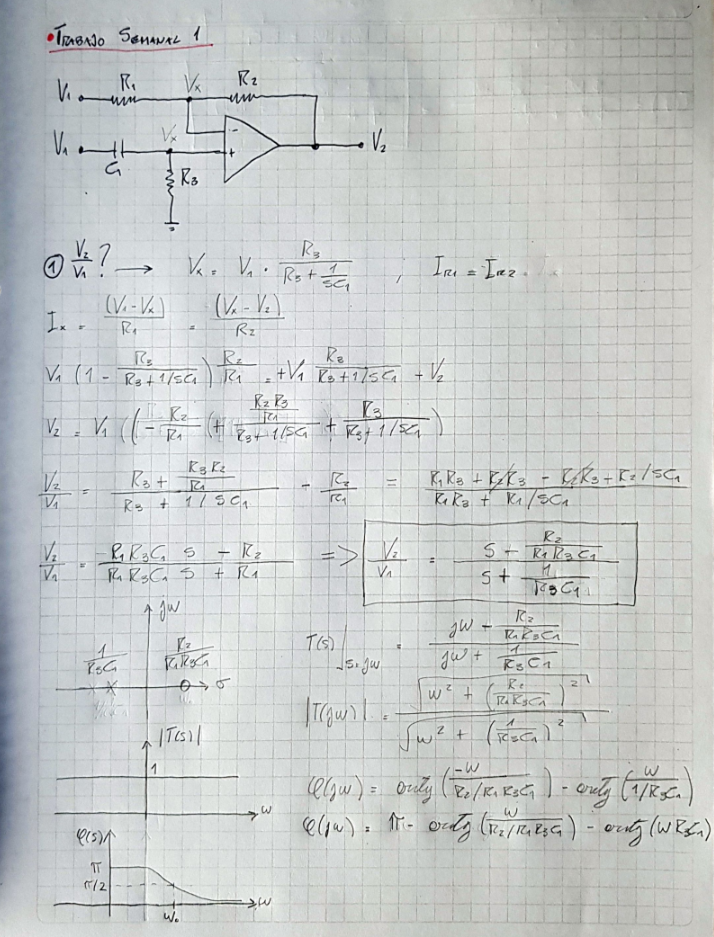 • TRABAJO SEMANAL 1
V₁ R₁ Vx R₂
V₁ C₁ Vx - + V₂
R₃
① V₂/V₁? → Vx = V₁ · R₃/(R₃ + 1/SC₁) , I_R1 = I_R2
Ix = (V₁-Vx)/R₁ = (Vx - V₂)/R₂
V₁ (1 - R₃/(R₃+1/SC₁)) R₂/R₁ = +V₁ R₃/(R₃+1/SC₁) - V₂
V₂ = V₁ ((-R₂/R₁ (+ (R₂R₃/R₁)/(R₃+1/SC₁) + R₃/(R₃+1/SC₁))
V₂/V₁ = (R₃ + R₃R₂/R₁)/(R₃ + 1/SC₁) - R₂/R₁ = (R₁R₃ + R₂R₃ - R₂R₃ + R₂/SC₁)/(R₁R₃ + R₁/SC₁)
V₂/V₁ = (R₁R₃C₁ S - R₂)/(R₁R₃C₁ S + R₁) => V₂/V₁ = (S - R₂/(R₁R₃C₁))/(S + 1/(R₃C₁))
jw
1/R₃C₁ R₂/R₁R₃C₁
σ
T(s)|s=jw = (jw - R₂/(R₁R₃C₁))/(jw + 1/(R₃C₁))
|T(jw)| = √(w² + (R₂/(R₁R₃C₁))²)/√(w² + (1/(R₃C₁))²)
|T(s)|
1
w
φ(jw) = arctg (-w/(R₂/R₁R₃C₁)) - arctg (w/(1/R₃C₁))
φ(jw) = π - arctg (w/(R₂/R₁R₃C₁)) - arctg (w R₃C₁)
φ(s)
π
π/2
w₀ w